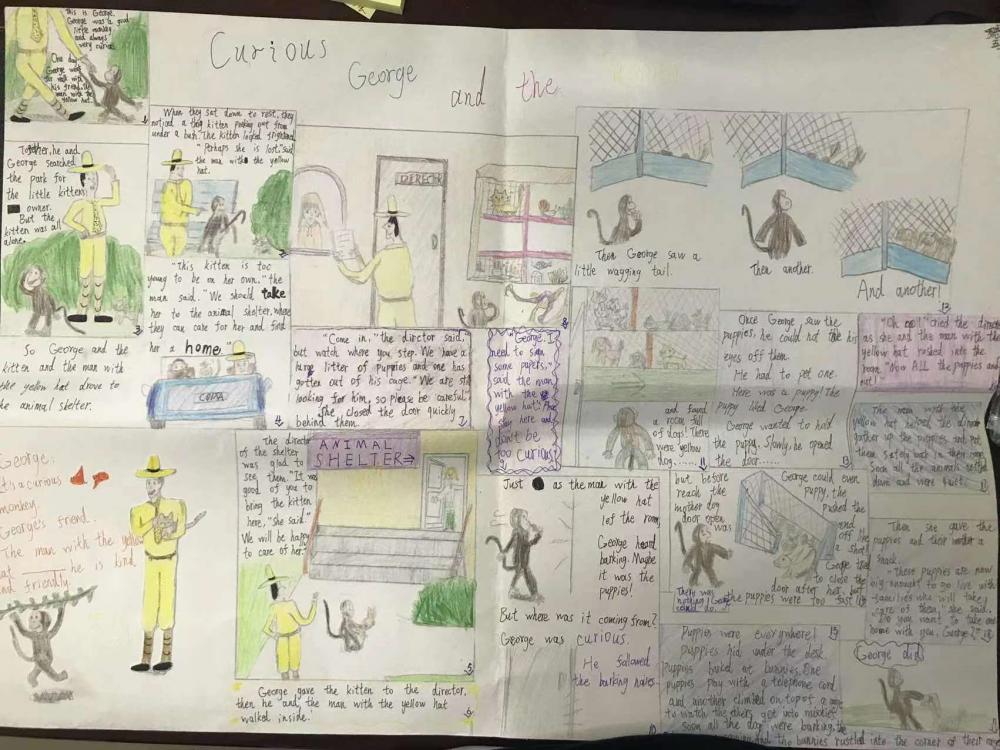 Curious
George
and the
This is George.
George was a good
little monkey
and always
very curious.
One day
George went
for walk with
his friend, the
man with the
yellow hat.
When they sat down to rest, they
noticed a kitten peeking out from
under a bush. The kitten looked frightened.
"Perhaps she is lost," said
the man with the yellow
hat.
Together, he and
George searched
the park for
the little kittens
owner.
But the
kitten was all
alone.
"This kitten is too
young to be on her own." the
man said. "We should take
her to the animal shelter, where
they can care for her and find
her a home."
So George and the
kitten and the man with
the yellow hat drove to
the animal shelter.
4
The director
of the shelter
was glad to
see them. "It was
good of you to
bring the kitten
here," she said.
We will be happy
to care of her."
ANIMAL
SHELTER→
5
George gave the kitten to the director,
then he and, the man with the yellow hat
walked inside.
6
"Come in," the director said,
but watch where you step. We have a
litter of puppies and one has
gotten out of his cage. "We are still
looking for him, so please be careful.
She closed the door quickly
behind them.
7
"George, I
need to sign
some papers,"
said the man
with the
yellow hat.
stay here and
don't be
too curious."
Just as the man with the
yellow hat
lef the room,
George heard
barking. Maybe
it was the
puppies!
But where was it coming from?
George was curious.
He followed
the barking
and found
a room full
of dogs! There
were yellow
dog......
Then George saw a
little wagging tail.
Then another.
And another!
Once George saw the
puppies, he could not
eyes off them.
He had to pet one.
Here was a puppy! The
puppy liked George.
George wanted to hold
the puppy. Slowly, he opened
the door......
but before
reach the
mother dog
door open
was
George could even
puppy, the
pushed the
and
off like
a shot!
George tried
to close the
door after her, but
the puppies were too fast
There was
nothing George
could do...
"Oh no!" cried the director
as she and the man with the
yellow hat rushed into the
room. "Now ALL the puppies are
out!
The man with the
yellow hat helped the director
gather up the puppies and put
them safely back in their room.
Soon all the animals settled
down and were quiet.
Puppies were everywhere!
puppies hid under the desk
puppies barked at bunnies. One
puppies play with a telephone cord
and another climbed on top of a
to watch the others get into mischief
soon all the dog were barking,
and the bunnies rustled into the corner of their
Then she gave the
puppies and their mother a
snack.
"These puppies are now
big enought to go live with
families who will take
care of them," she said.
"Do you want to take one
home with you, George?"
George did
George:
It's a curious
monkey.
George's friend.
The man with the yellow
hat he is kind
and friendly.